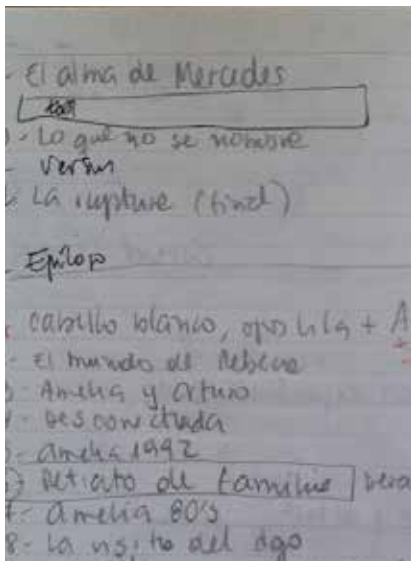 - El alma de Mercedes
- Lo que no se nombre
- Versus
La rupture (final)
- Epílogo
cabello blanco, ojos lila + A
- El mundo de Rebeca
- Amelia y Arturo
- Desconectada
- Amelia 1992
Retrato de familia
7- Amelia 80's
8- La visita del